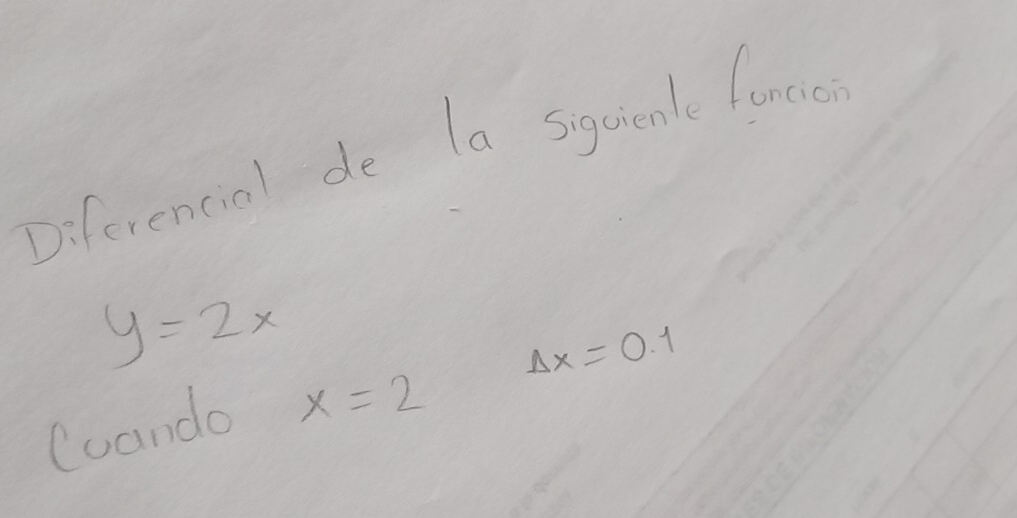 Diferencial de la siguiente funcion
y = 2x
Cuando x = 2 Δx = 0.1